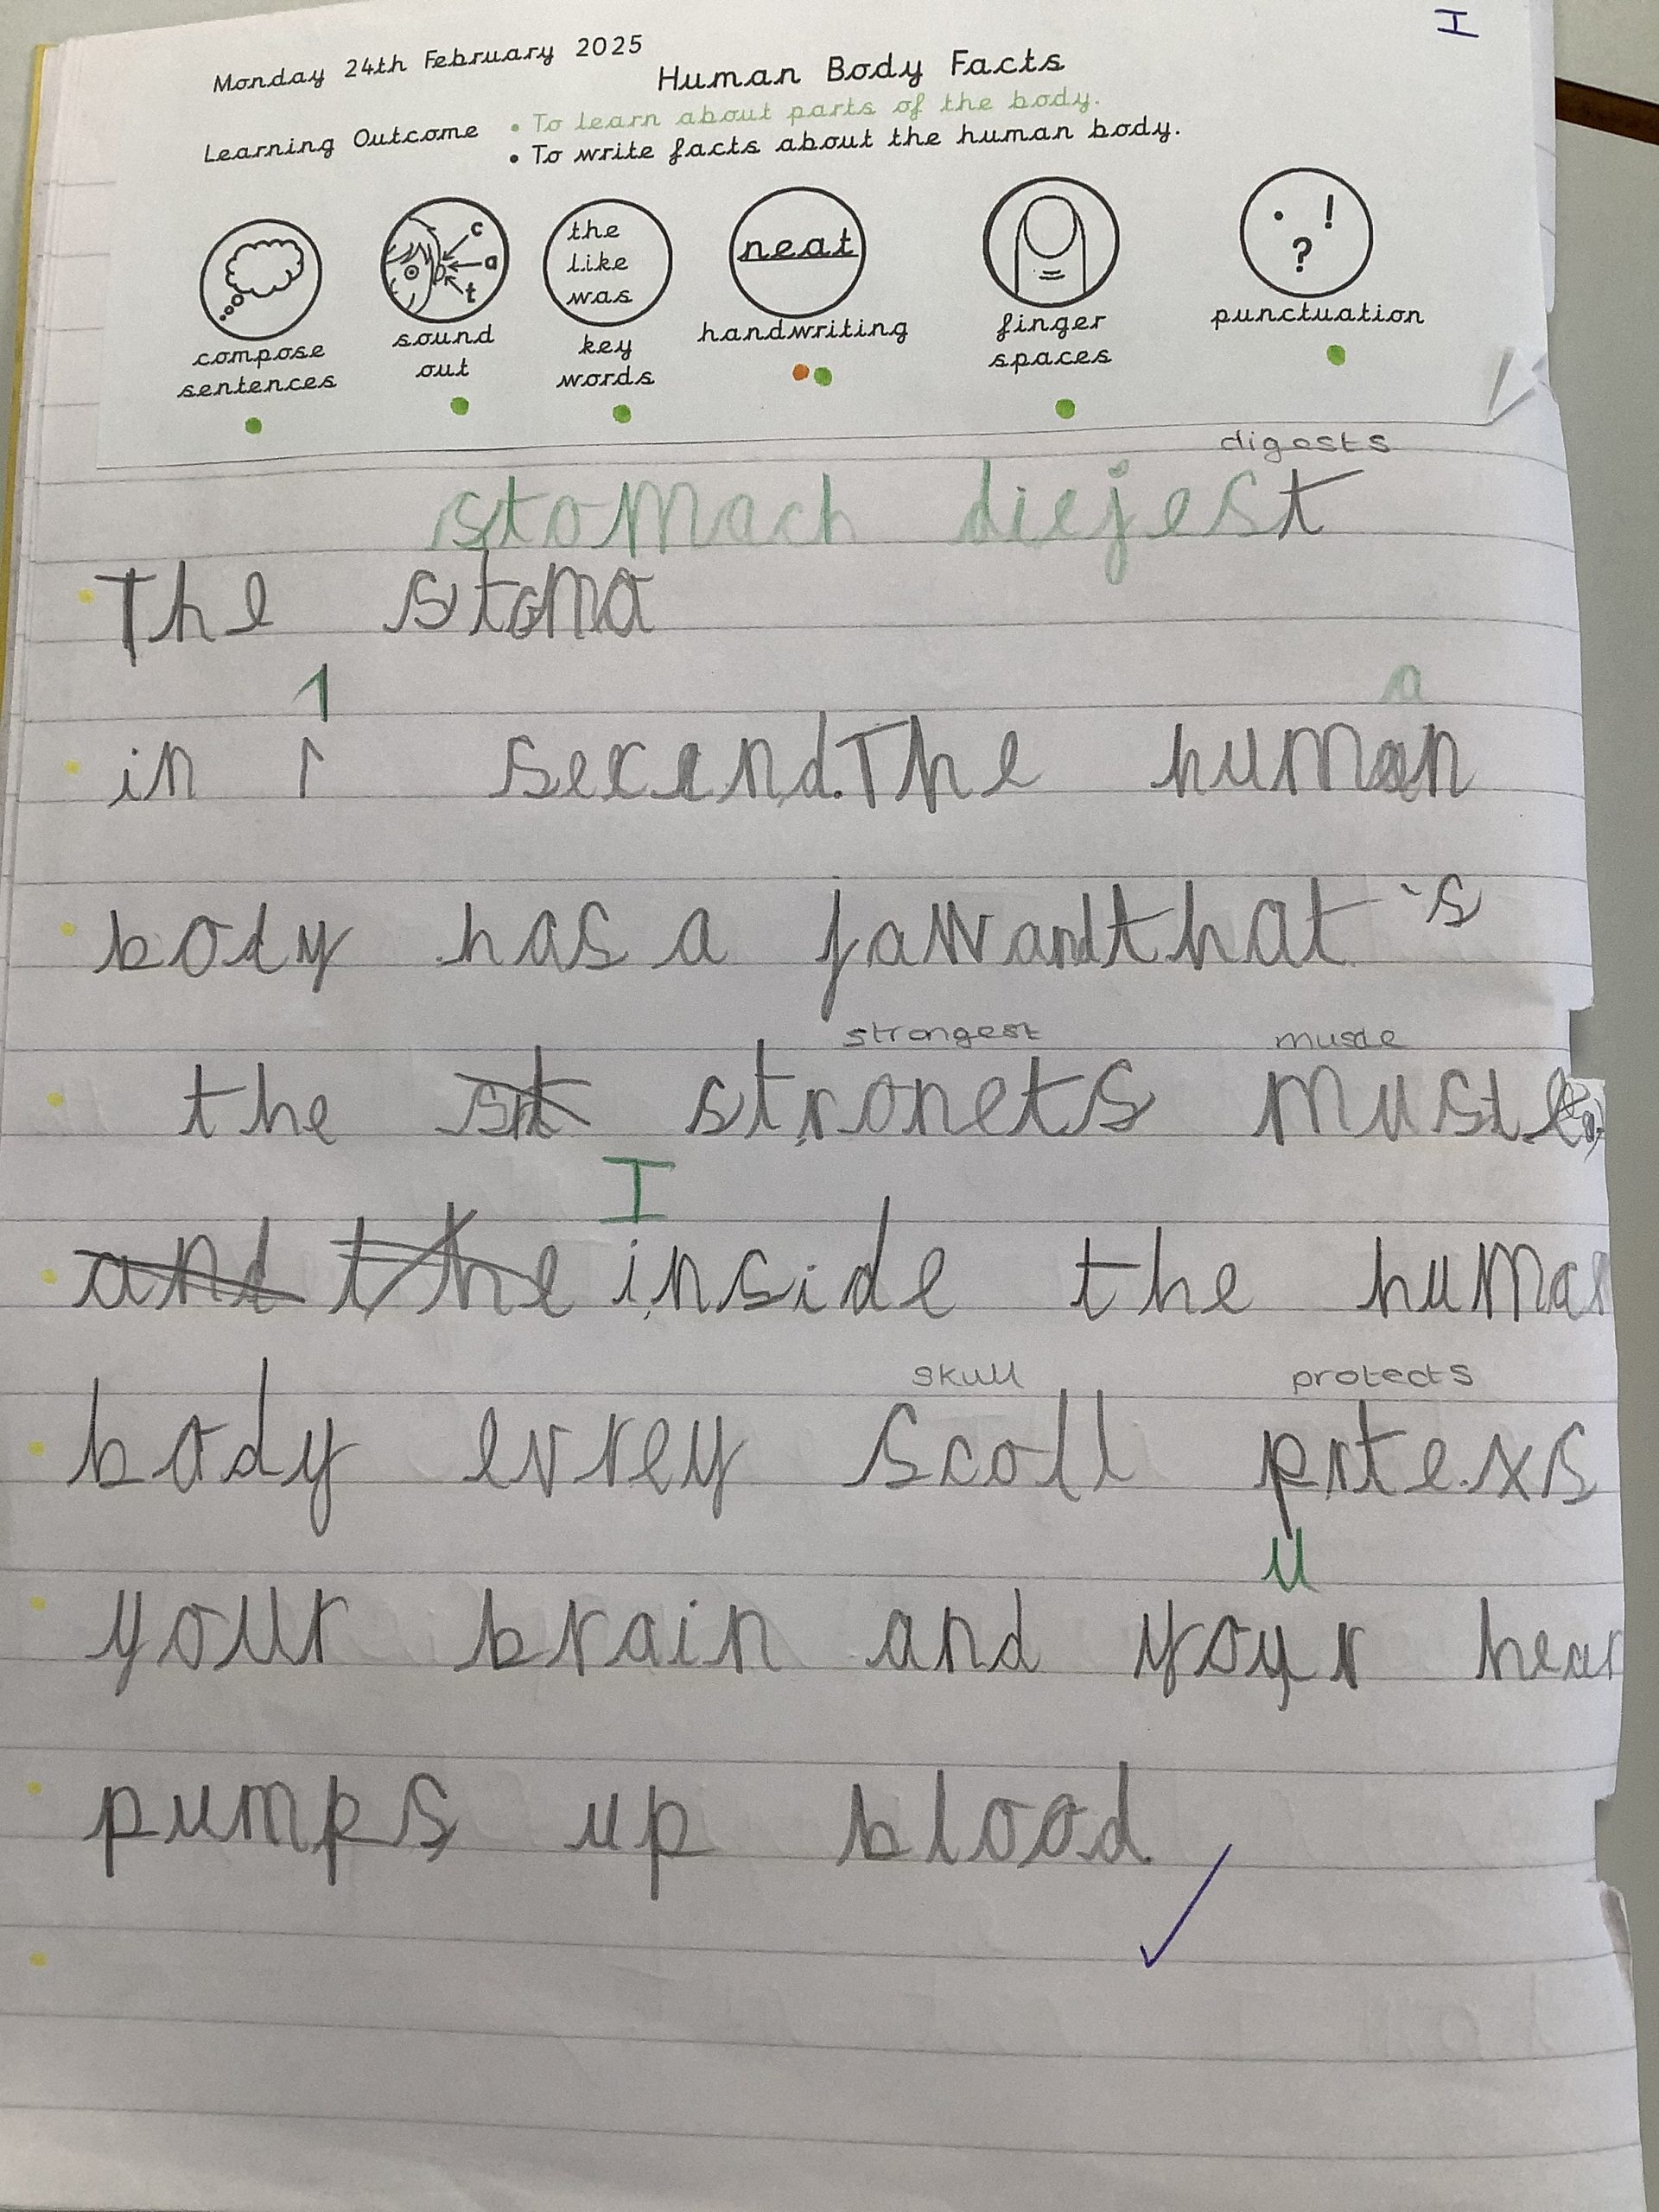 I
Monday 24th February 2025
Human Body Facts
Learning Outcome
• To learn about parts of the body.
• To write facts about the human body.
c
a
t
the
like
was
neat
. !
?
compose
sentences
sound
out
key
words
handwriting
finger
spaces
punctuation
digests
stomach diejest
The stoma
1
a
in 1 secend. The human
body has a jaw and that's
strongest muscle
the st stronets mustle
I
and the inside the human
skull protects
body evrey scoll prtexs
u
your brain and your hear
pumps up blood.